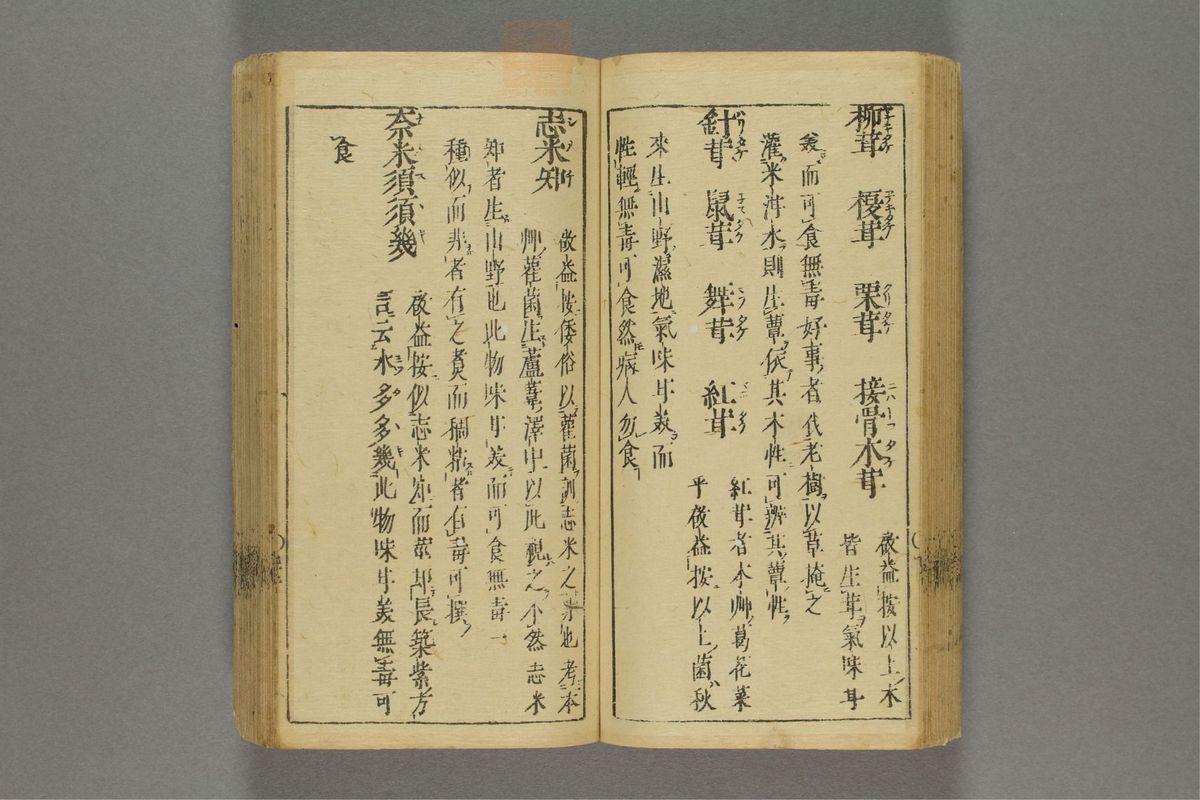 柳茸 榎茸 栗茸 接骨木茸 敬益按以上木
皆生茸氣味甘
美而可食無毒好事者伐老樹以草掩之
灌米泔水則生蕈依其木性可辨其蕈性
針茸 鼠茸 舞茸 紅茸 紅茸者本艸葛花菜
乎敬益按以上菌秋
來生山野濕地氣味甘美而
性輕無毒可食然病人勿食
志米知 敬益按倭俗以雚菌訓志米之非也考本
艸雚菌生蘆葦澤中以此觀之不然志米
知者生山野也此物味甘美而可食無毒一
種似而非者有之煑而稠粘者有毒可撰
奈米須須幾 敬益按似志米知而莖長築紫方
言云水多多幾此物味甘美無毒可
食